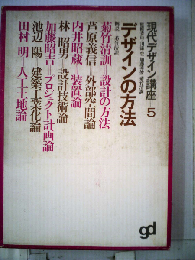 現代デザイン講座 5
デザインの方法
菊竹清訓 設計の方法
芦原義信 外部空間論
内井昭蔵 装置論
林 昭男 設計技術論
加藤昭吉 プロジェクト計画論
池辺 陽 建築工業化論
田村 明 人工土地論
gd